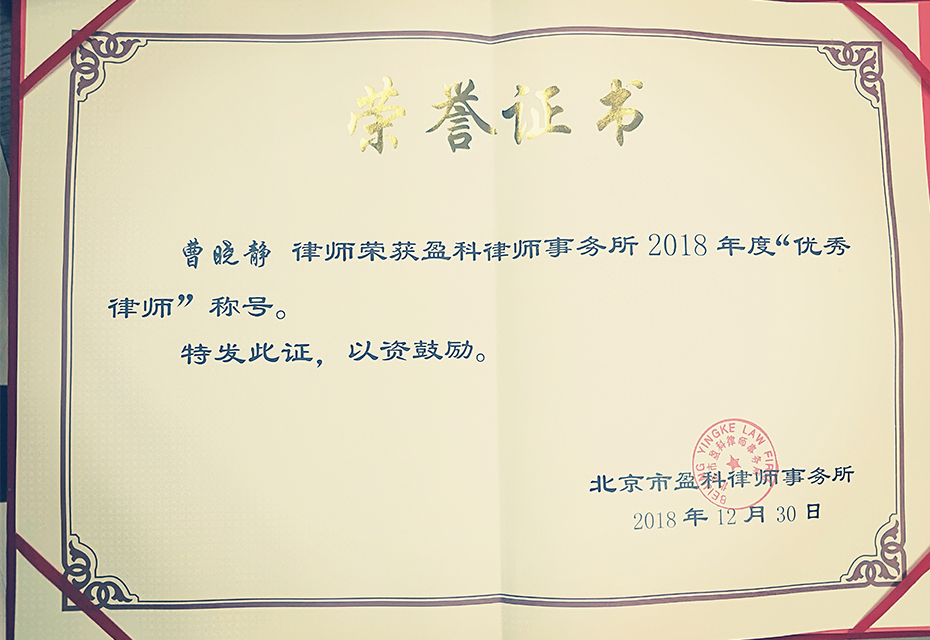 荣誉证书
曹晓静 律师荣获盈科律师事务所 2018 年度“优秀
律师”称号。
特发此证，以资鼓励。
BEIJING YINGKE LAW FIRM
北京市盈科律师事务所
北京市盈科律师事务所
2018 年 12 月 30 日